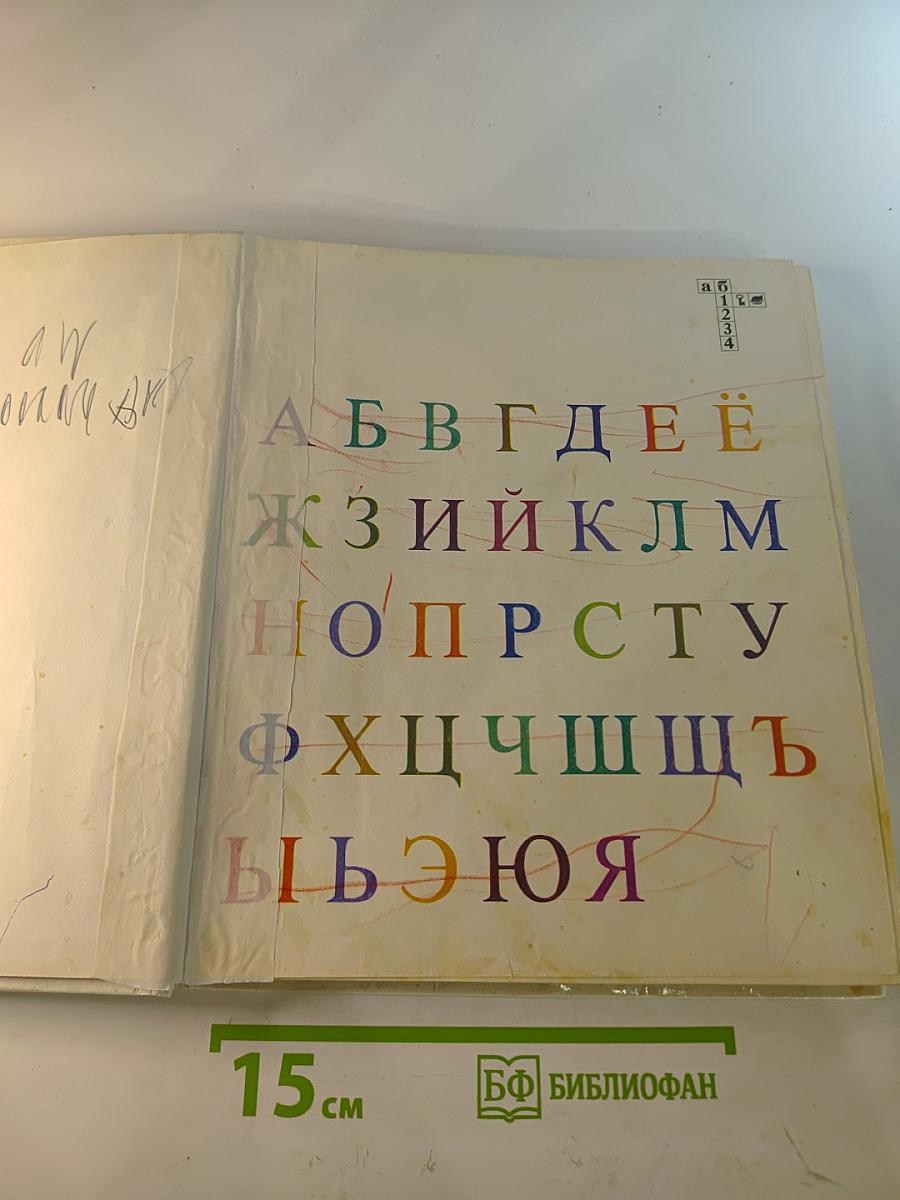 аб
1
2
3
4
А Б В Г Д Е Ё
Ж З И Й К Л М
Н О П Р С Т У
Ф Х Ц Ч Ш Щ Ъ
Ы Ь Э Ю Я
15 см
БФ БИБЛИОФАН